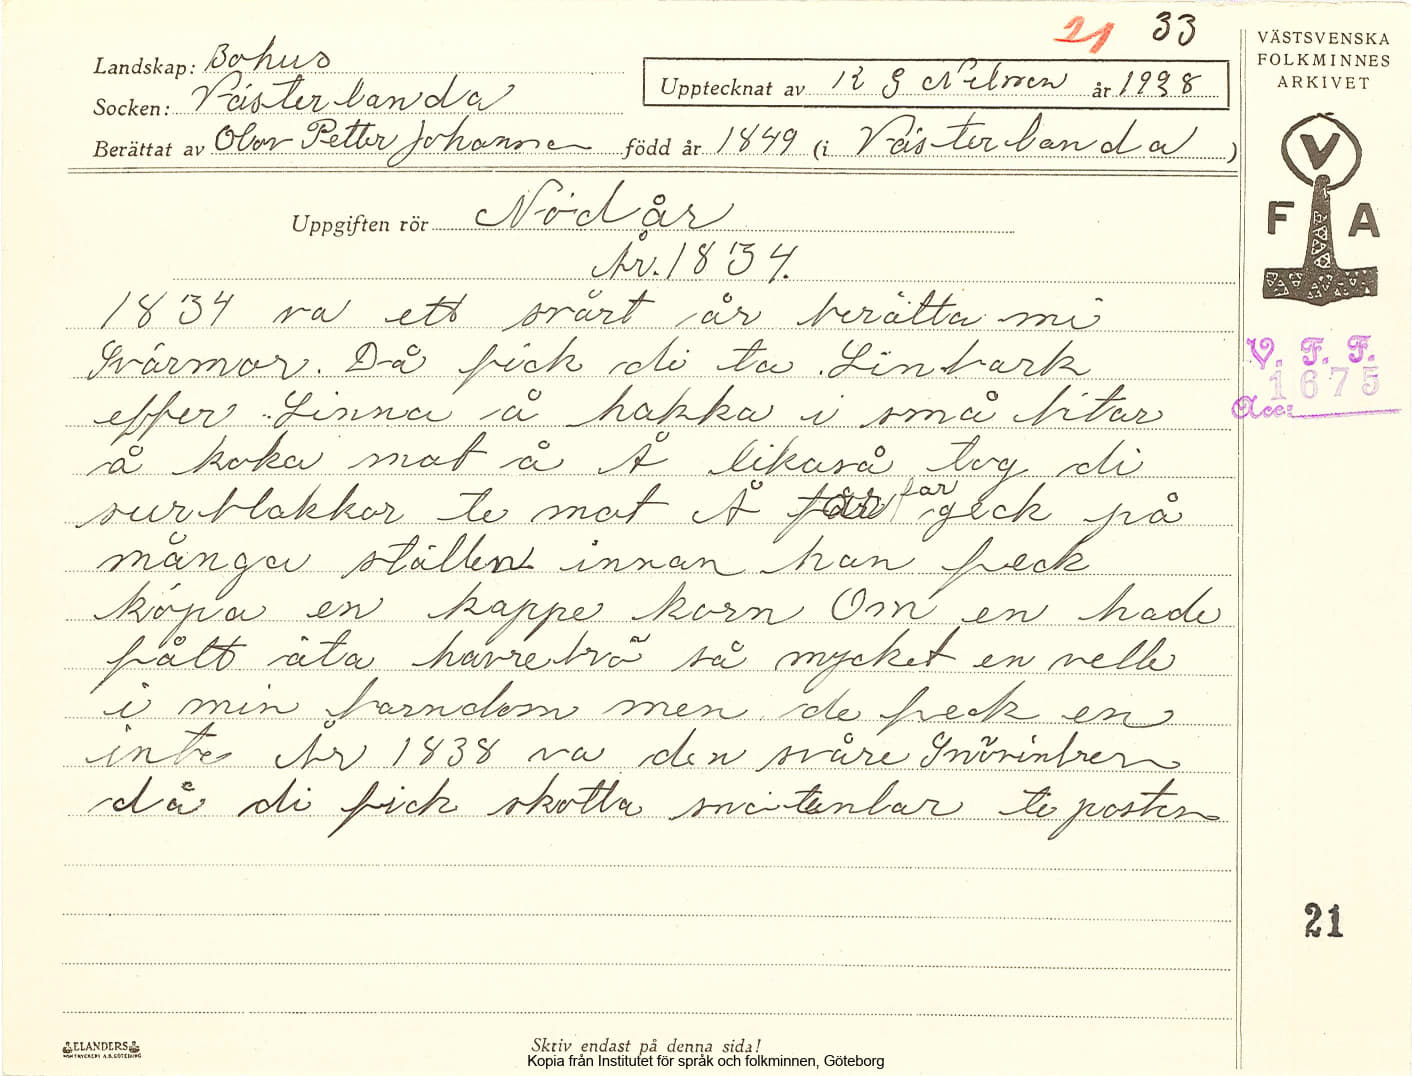 21 33
Landskap: Bohus
Socken: Västerlanda
Upptecknat av K G Nilsson år 1928
Berättat av Olov Petter Johansson född år 1849 (i Västerlanda)
Uppgiften rör Nödår
År. 1834.
1834 va ett svårt år berätta mi
Svärmor. Då fick di ta Linbark
effer Linna å hakka i små bitar
å koka mat å Å likaså tog di
surblakkor te mat Å far geck på
många ställen innan han feck
köpa en kappe korn Om en hade
fått äta havrebrö så mycket en velle
i min barndom men de feck en
inte År 1838 va den svåre Snövintren
då di fick skotta till posten
VÄSTSVENSKA
FOLKMINNES
ARKIVET
V
F A
V. F. F.
1675
Acc:
21
ELANDERS
Skriv endast på denna sida!
Kopia från Institutet för språk och folkminnen, Göteborg